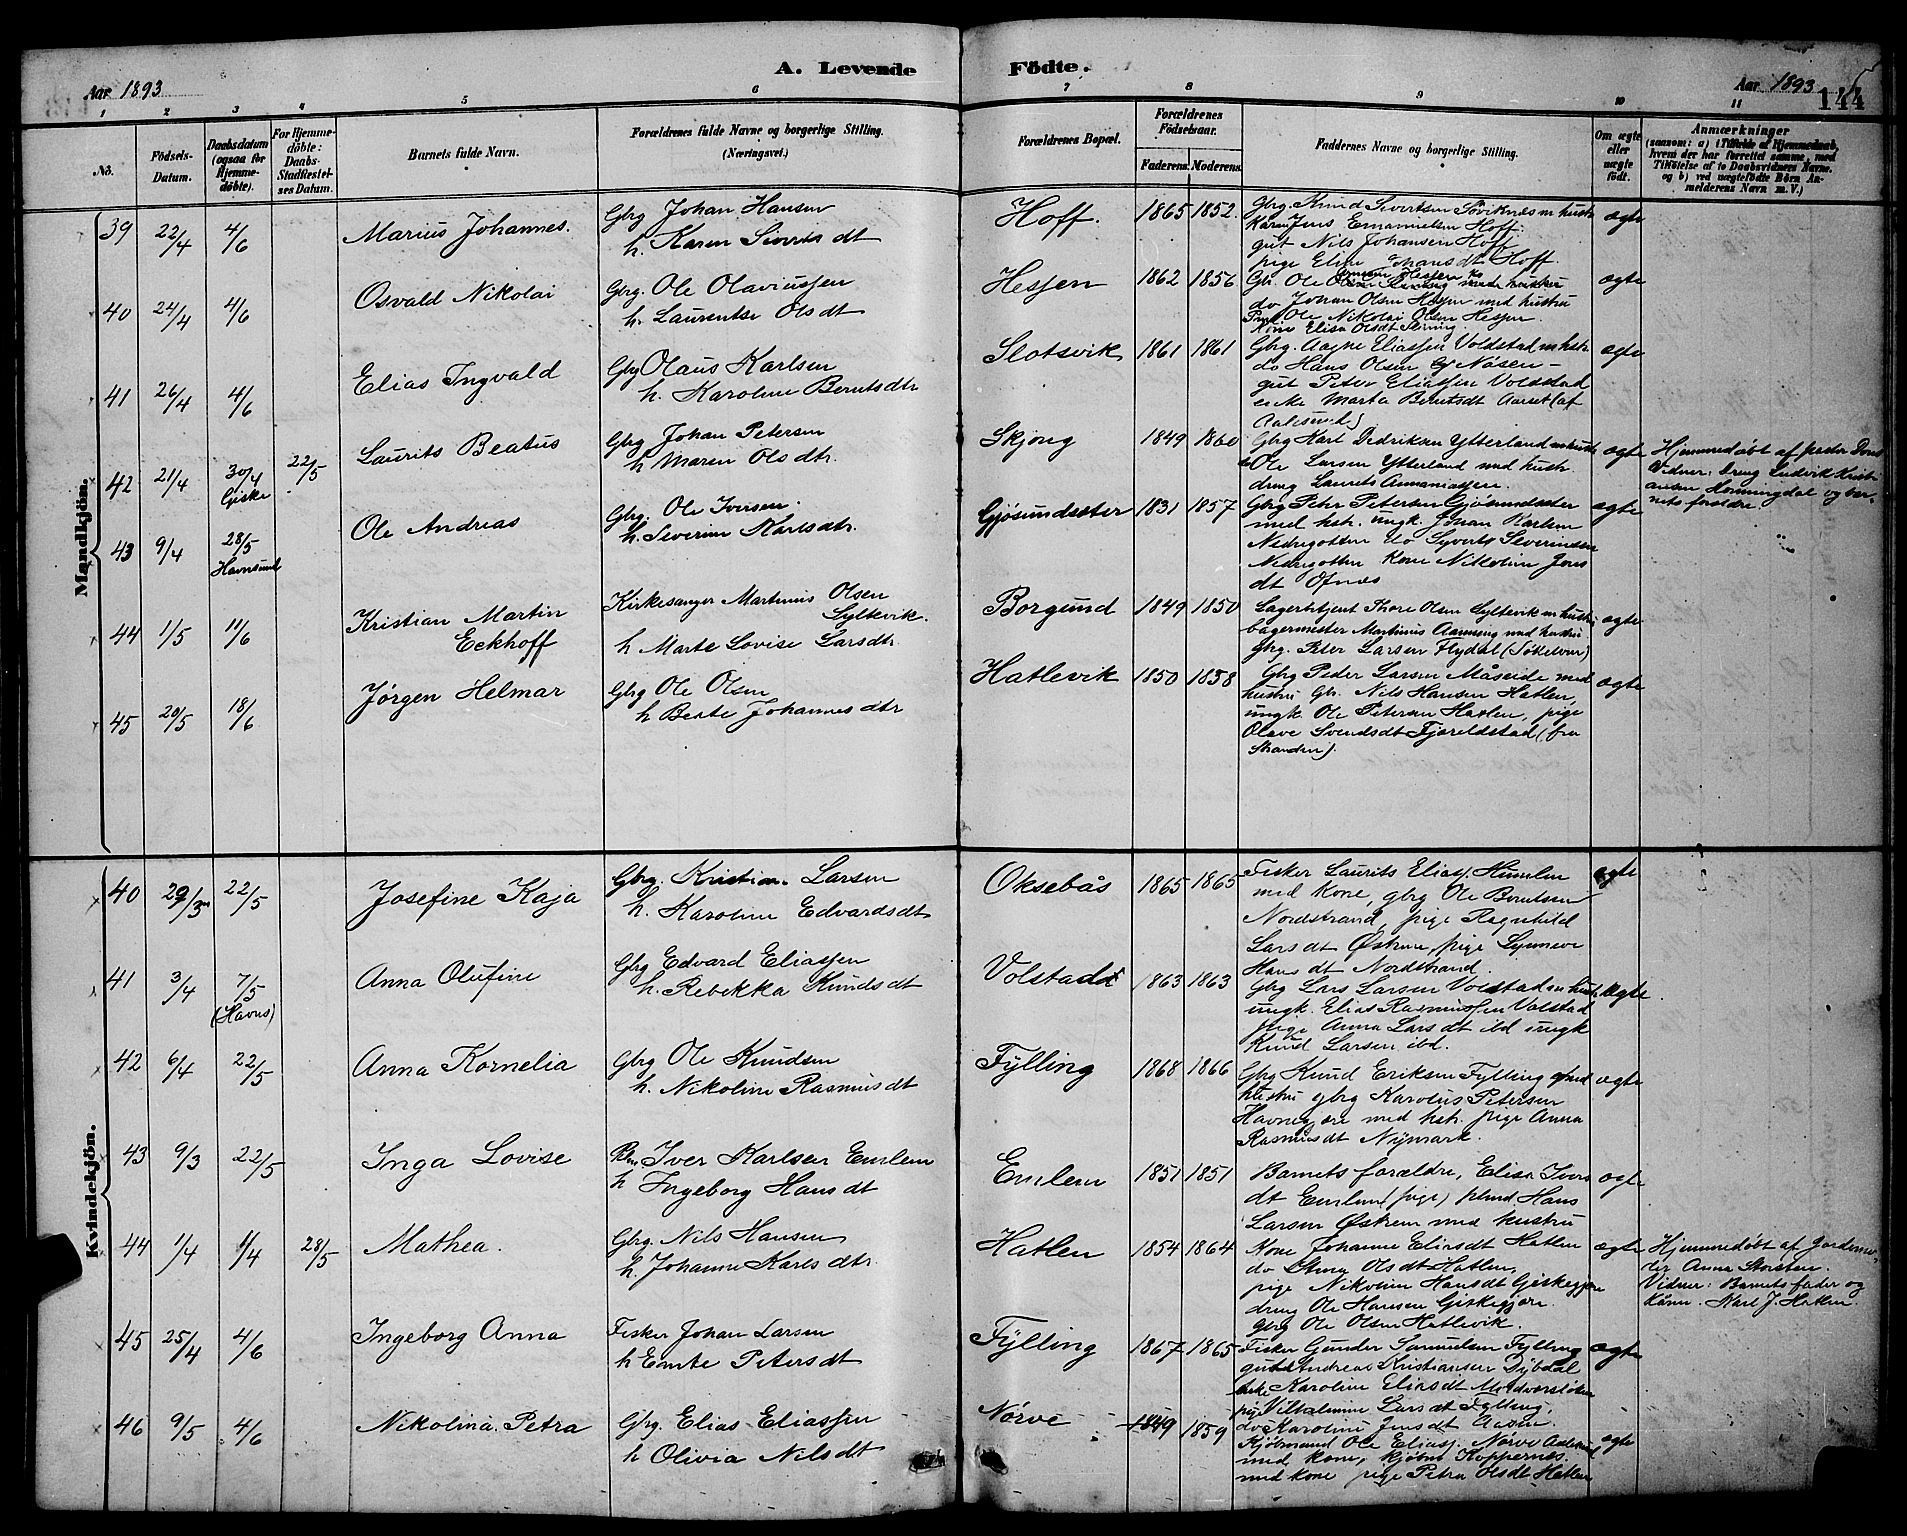 A. Levende Födte.
Aar 1893
Aar 1893
144
1 2 3 4 5 6 7 8 9 10 11
No.
Födsels-Datum.
Daabsdatum (ogsaa for Hjemme-döbte).
For Hjemme-döbte: Daabs-Stadfæstel-ses Datum.
Barnets fulde Navn.
Forældrenes fulde Navne og borgerlige Stilling. (Næringsvei.)
Forældrenes Bopæl.
Forældrenes Födselsaar.
Faderens. Moderens.
Faddernes Navne og borgerlige Stilling.
Om ægte eller uægte födt.
Anmærkninger
(saasom: a) i Tilfælde af Hjemmedaab, hvem der har forrettet samme, med Tilföielse af to Daabsvidners Navne, og b) ved uægtefödte Börn An-melderens Navn m. V.)
Mandkjön.
39 22/4 4/6 Marius Johannes. Gbrg Johan Hansen
h. Karen Sivertsdt
Hoff. 1865 1852. Gbrg. Knud Sivertsen Søviknæs m hustr
Jens Emanuelsen Hoff.
gut Nils Johansen Hoff
pige Eline Hansdt Hoff. ægte
40 24/4 4/6 Osvald Nikolai Gbrg. Ole Olaviussen
h. Laurentse Olsdt
Hessen 1862 1856 Gbr. Ole
do Johan Olsen Hessen med hustru
Ole Nikolai Olsen Hessen.
Kone Elisa Olsdt ægte
41 26/4 4/6 Elias Ingvald Gbrg Olaus Karlsen
h. Karoline Berntsdtr
Slotsvik 1861 1861 Gbrg. Aagne Eliassen Voldstad m hstr
do Hans Olsen Nåsen -
gut Peter Eliassen Voldstad
enke Marta Berntsdt Aarset (af
Aalesund) ægte
42 21/4 30/4 Giske 22/5 Laurits Beatus Gbrg Johan Petersen
h Maren Olsdtr.
Skjong 1849 1860 Gbrg Karl Dedriksen Ytterland m hustr
do Ole Larsen Ytterland med hustr.
dreng Laurits Annaniassen. ægte
Hjemmedøbt af
Vidner: Dreng Ludvik Kristi
ansen Hornningdal og bar-
nets forældre.
43 9/4 28/5 Havnsund Ole Andreas Gbrg. Ole Iversen
h. Severine Karlsdtr.
Gjøsundsæter 1831 1857 Gbrg Peter Petersen Gjøsundsæter
med hstr. ungk. Johan Karlsen
Nedregotten do Syverts Severindsen
Nedregotten Kone Nikoline Jons
dt Ofnæs ægte
44 1/5 11/6 Kristian Martin
Eckhoff Kirkesanger Martinus Olsen
Syltevik.
h Marte Lovise Larsdtr.
Borgund 1849 1850 Lagerbetjent Thore Olsen Syltevik m hustr
bagermester Martinus Aamseng med hustru
gbrg. Peter Larsen Flydal (Søkelven) ægte
45 20/5 18/6 Jørgen Helmar Gbrg Ole Olsen
h Beate Johannesdtr
Hatlevik 1850 1858 Gbrg Peder Larsen Måseide med
hustru Gbr. Nils Hansen Hatlen,
ungk. Ole Petersen Hatlen, pige
Olave Svendsdt Fjøreldstad (fra
Stranden). ægte
Kvindekjön.
40 29/3 22/5 Josefine Kaja Gbrg. Kristian Larsen
h. Karoline Edvardsdt
Oksebås 1865 1865 Fisker Laurits Eliass. Humlen
med Kone, gbrg Ole Berntsen
Nordstrand, pige Ragnhild
Larsdt Østrem, pige Synneve
Hansdt Nordstrand. ægte
41 3/4 7/5 (Havns) Anna Olufine Gbrg Edvard Eliassen
h. Rebekka Knudsdt
Volstad 1863 1863 Gbrg Lars Larsen Volstad m hustr
ungk. Elias Rasmussen Volstad
pige Anna Larsdt ibd ungk
Knud Larsen ibd. ægte.
42 6/4 22/5 Anna Kornelia Gbrg Ole Knudsen
h. Nikoline Rasmusdt
Fylling 1868 1866 Gbrg Knud Eriksen Fylling med
hustru gbrg Karolus Petersen
Havnegjære med hstr. pige Anna
Rasmusdt Nymark. ægte
43 9/3 22/5 Inga Lovise Plm. Iver Karlsen Emlem
h Ingeborg Hansdt
Emlem 1851 1851 Barnets forældre, Elisa Ivers
dt Emlem (pige) plmd Hans
Larsen Østrem med hustru ægte
44 1/4 1/4 28/5 Mathea. Gbrg. Nils Hansen
h. Johanne Karlsdtr.
Hatlen 1854 1864 Kone Johanne Eliasdt Hatlen
do Stina Olsdt Hatlen,
pige Nikoline Hansdt Giskegjøre
dreng Ole Hansen Giskegjøre.
gbrg Ole Olsen Hatlevik. ægte
Hjemmedøbt af Jordemo-
der Anna Storsten.
Vidner: Barnets fader og
Karl J. Hatlen.
45 25/4 4/6 Ingeborg Anna Fisker Johan Larsen
h Emte Petersdt
Fylling 1867 1865 Fisker Gunder Samuelsen Fylling
gut Andreas Kristiansen Dybdal
Karoline Eliasdt
pig Vilhelmine Larsdt Fylling,
do Karoline Jensdt Aasen. ægte
46 9/5 4/6 Nikolina Petra Gbrg. Elias Eliassen
h Olivia Nilsdt
Nørve 1849 1859 Kjøbmand Ole Eliass. Nørve Aalesund
med kone, kjøbm. Koppernæs.
med kone pige Petra Olsdt Hatlen ægte